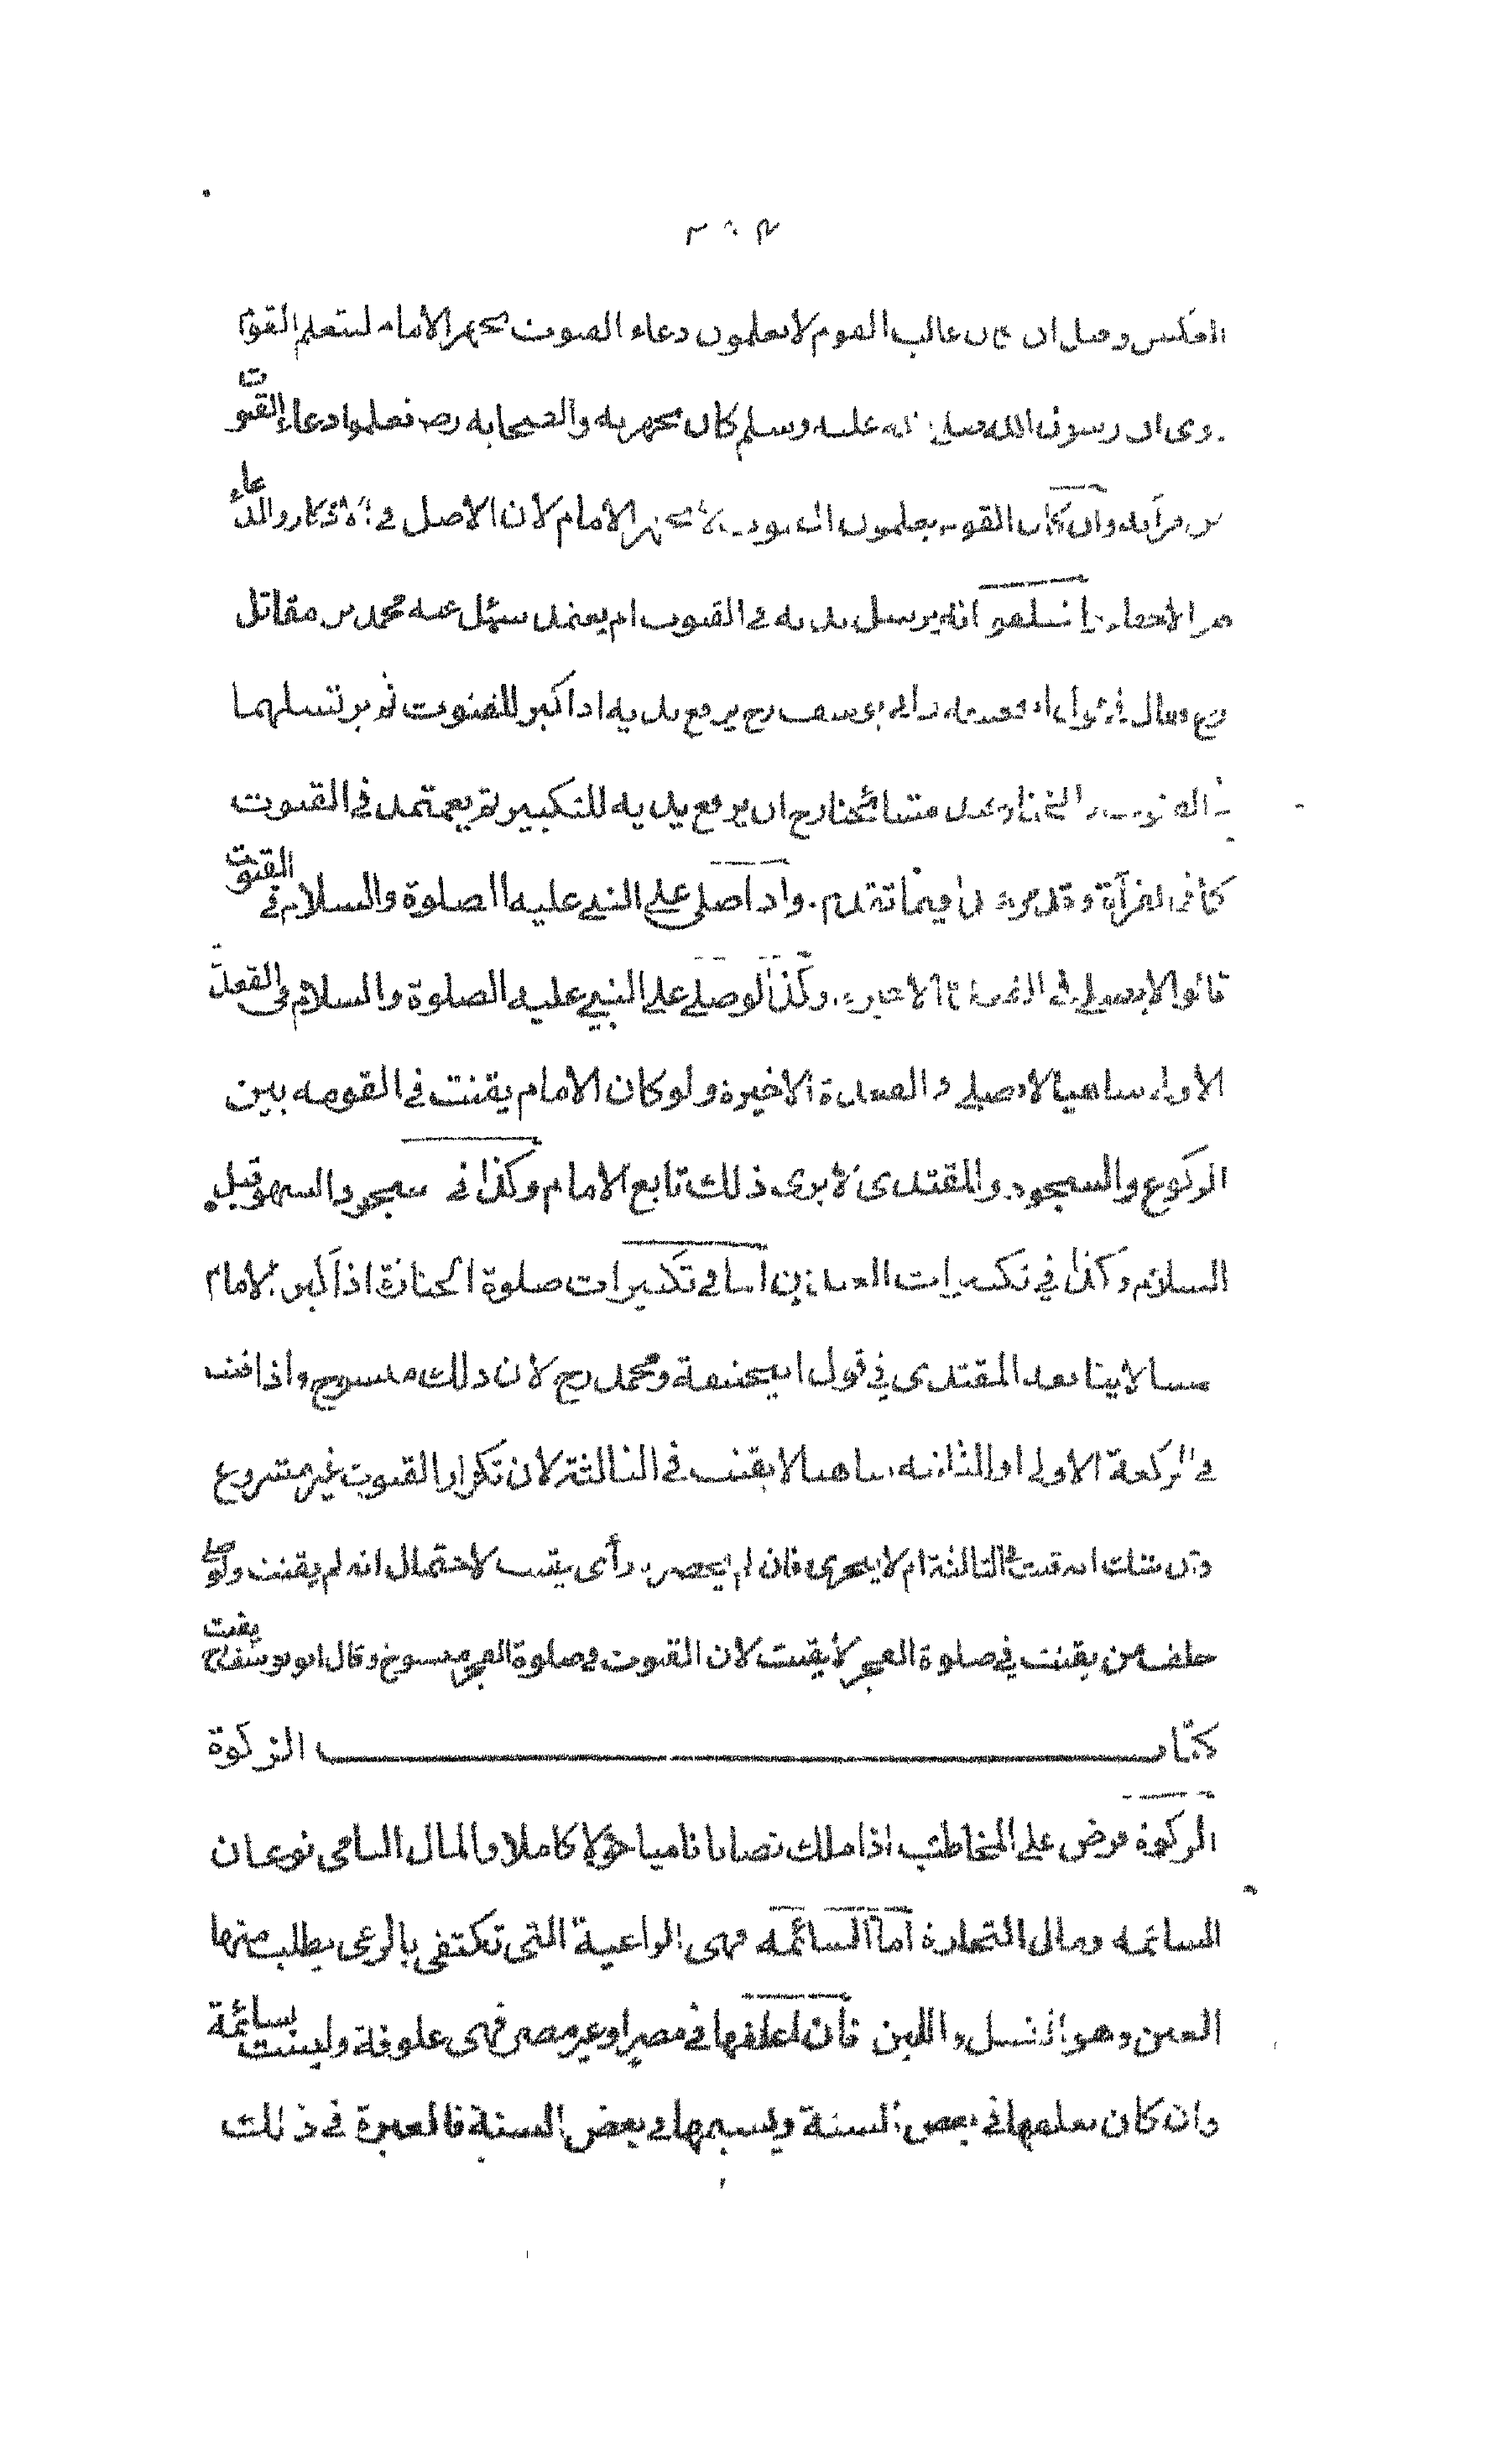 ٢٠٣
العكس وقيل ان كان غالب القوم لا يعلمون دعاء القنوت يجهر الامام ليتعلم القوم
روى ان رسول الله صلى الله عليه وسلم كان يجهر به والصحابة رض تعلموا دعاء القنوت
من قرأته وان كان القوم يعلمون القنوت لا يجهر الامام لان الاصل في الاذكار والدعاء
هو الاخفاء انه يرسل يديه في القنوت ام يعتمد سئل عنه محمد بن مقاتل
وقال في قول ابي يوسف رح يرفع يديه اذا كبر للقنوت ثم يرسلهما
مشائخنا رح ان يرفع يديه للتكبير ثم يعتمد في القنوت
كما في القرآة وقد مرت فيما تقدم واذا صلى على النبي عليه الصلوة والسلام في القنوت
قالوا لا يصلي في القعدة الاخيرة وكذا لو صلى على النبي عليه الصلوة والسلام في القعدة
الاولى ساهيا لا يصلي في القعدة الاخيرة ولو كان الامام يقنت في القومه بين
الركوع والسجود والمقتدى لا يرى ذلك تابع الامام وكذا في سجود السهو قبل
السلام وكذا في تكبيرات العيدين اما في تكبيرات صلوة الجنازة اذا كبر الامام
خمسا لا يتابعه المقتدى في قول ابيحنيفة ومحمد رح لان ذلك منسوخ واذا قنت
في الركعة الاولى او الثانيه ساهيا لا يقنت في الثالثة لان تكرار القنوت غير مشروع
وان شك انه قنت في الثالثة ام لا يتحرى فان لم يحضره رأى يقنت لاحتمال انه لم يقنت ولو صلى
خلف من يقنت في صلوة الفجر لا يقنت لان القنوت في صلوة الفجر منسوخ وقال ابو يوسف رح يقنت
كتاب الزكوة
الزكوة فرض على المخاطب اذا ملك نصابا ناميا حولا كاملا والمال النامى نوعان
السائمه ومال التجارة اما السائمه فهى الراعية التى تكتفى بالرعى يطلب منها
العين وهو النسل واللبن فان اعلفها في مصر او غير مصر فهى علوفة وليست بسائمة
وان كان يعلفها في بعض السنة ويسيمها في بعض السنة فالعبرة في ذلك